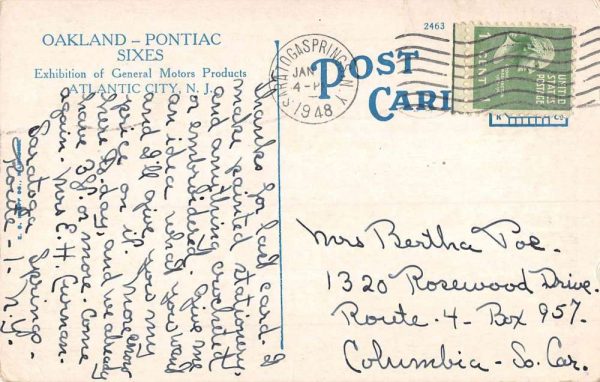 OAKLAND – PONTIAC
SIXES
Exhibition of General Motors Products
ATLANTIC CITY, N. J.
2463
POST
CARD
SARATOGA SPRINGS, N.Y.
JAN
4 - P
1948
UNITED
STATES
POSTAGE
1 CENT 1
Thanks for last card. I
make painted stationery,
and anything crocheted
or embroidered. Give me
an idea what you want
and I'll give you my
price on it. More snow
here to-day, and we already
have 38 in. or more. Come
again. Mrs E. H. Curnan.
Saratoga Springs -
Route - 1 - N.Y.
Mrs Bertha Poe.
1320 Rosewood Drive.
Route. 4 - Box 957.
Columbia - So. Car.